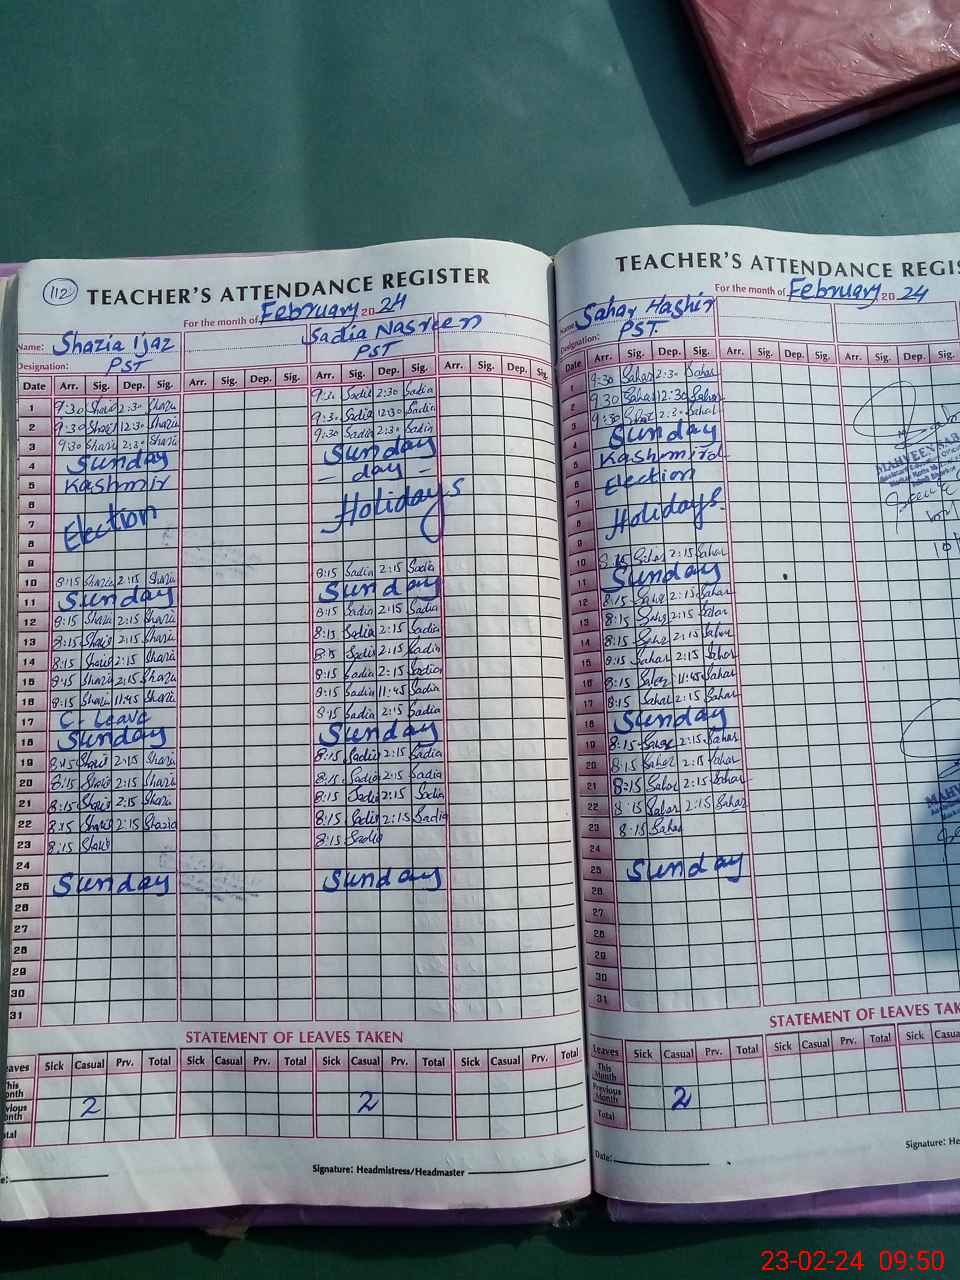 112
TEACHER'S ATTENDANCE REGISTER
For the month of February 2024
Name: Shazia Ijaz
Sadia Nasreen
Designation: PST
PST
Date Arr. Sig. Dep. Sig. Arr. Sig. Dep. Sig. Arr. Sig. Dep. Sig. Arr. Sig. Dep. Sig.
1 9:30 Shazia 2:30 Shazia 9:30 Sadia 2:30 Sadia
2 9:30 Shazia 12:30 Shazia 9:30 Sadia 12:30 Sadia
3 9:30 Shazia 2:30 Shazia 9:30 Sadia 2:30 Sadia
4 Sunday Sunday
5 Kashmir - day -
6
7 Election Holidays
8
9
10 8:15 Shazia 2:15 Shazia 8:15 Sadia 2:15 Sadia
11 Sunday Sunday
12 8:15 Shazia 2:15 Shazia 8:15 Sadia 2:15 Sadia
13 8:15 Shazia 2:15 Shazia 8:15 Sadia 2:15 Sadia
14 8:15 Shazia 2:15 Shazia 8:15 Sadia 2:15 Sadia
15 8:15 Shazia 2:15 Shazia 8:15 Sadia 2:15 Sadia
16 8:15 Shazia 11:45 Shazia 8:15 Sadia 11:45 Sadia
17 C- Leave 8:15 Sadia 2:15 Sadia
18 Sunday Sunday
19 8:15 Shazia 2:15 Shazia 8:15 Sadia 2:15 Sadia
20 8:15 Shazia 2:15 Shazia 8:15 Sadia 2:15 Sadia
21 8:15 Shazia 2:15 Shazia 8:15 Sadia 2:15 Sadia
22 8:15 Shazia 2:15 Shazia 8:15 Sadia 2:15 Sadia
23 8:15 Shazia 8:15 Sadia
24
25 Sunday Sunday
26
27
28
29
30
31
STATEMENT OF LEAVES TAKEN
eaves Sick Casual Prv. Total Sick Casual Prv. Total Sick Casual Prv. Total Sick Casual Prv. Total
This
onth
vious
onth 2 2
otal
e:
Signature: Headmistress/Headmaster
TEACHER'S ATTENDANCE REGIS
For the month of February 2024
Name: Sahar Hashir
Designation: PST
Date Arr. Sig. Dep. Sig. Arr. Sig. Dep. Sig. Arr. Sig. Dep. Sig.
1 9:30 Sahar 2:30 Sahar
2 9:30 Sahar 12:30 Sahar
3 9:30 Sahar 2:30 Sahar
4 Sunday
5 Kashmird
6 Election
7
8 Holidays
9
10 8:15 Sahar 2:15 Sahar
11 Sunday
12 8:15 Sahar 2:15 Sahar
13 8:15 Sahar 2:15 Sahar
14 8:15 Sahar 2:15 Sahar
15 8:15 Sahar 2:15 Sahar
16 8:15 Sahar 11:45 Sahar
17 8:15 Sahar 2:15 Sahar
18 Sunday
19 8:15 Sahar 2:15 Sahar
20 8:15 Sahar 2:15 Sahar
21 8:15 Sahar 2:15 Sahar
22 8:15 Sahar 2:15 Sahar
23 8:15 Sahar
24
25 Sunday
26
27
28
29
30
31
MAHVEEN SAB
MAHV
STATEMENT OF LEAVES TAK
Leaves Sick Casual Prv. Total Sick Casual Prv. Total Sick Casua
This
Month
Previous
Month 2
Total
Date:
Signature: He
23-02-24 09:50